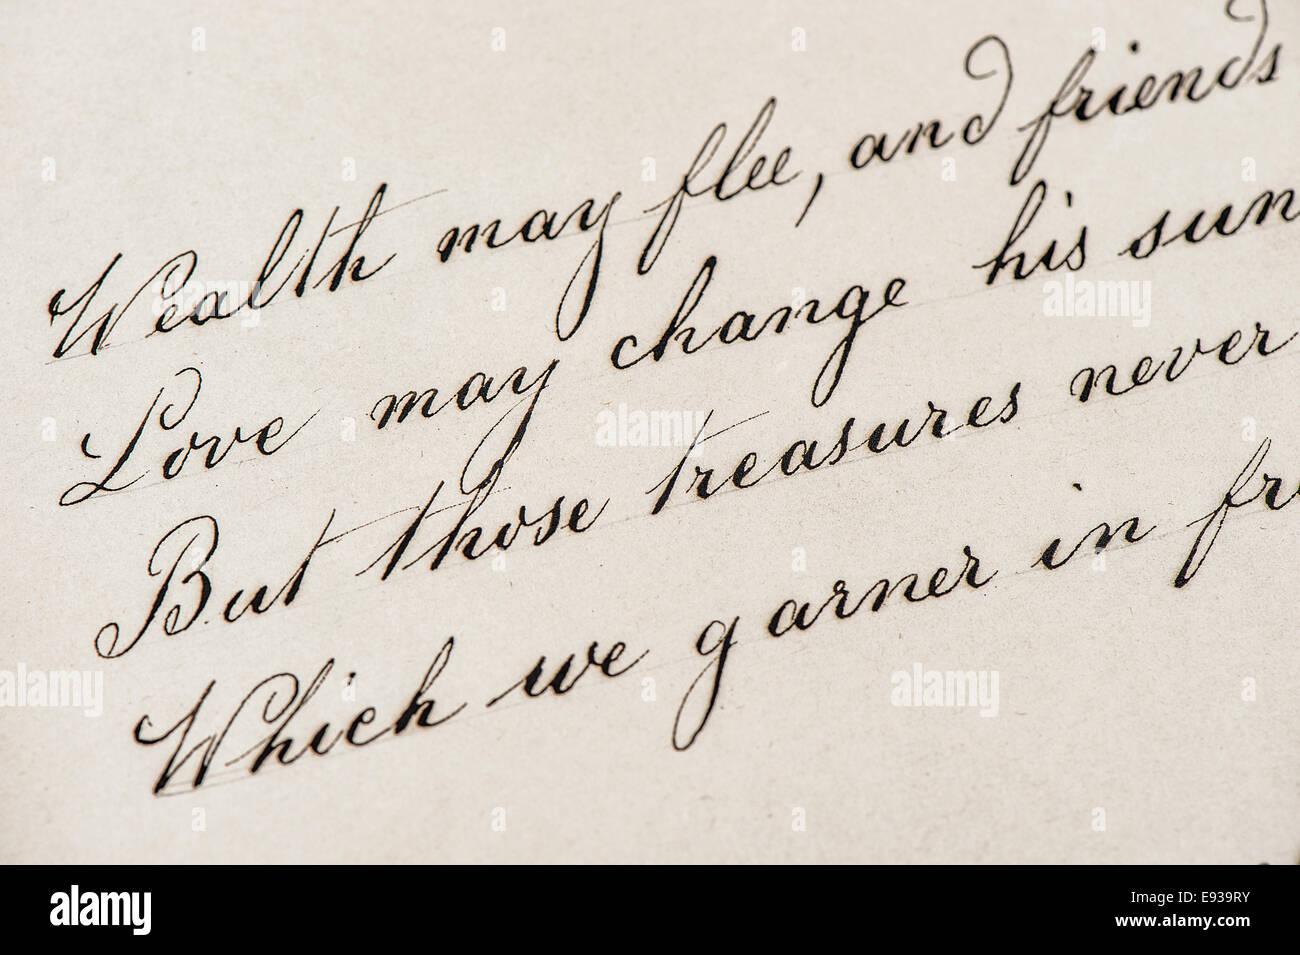 Wealth may flee, and friends
Love may change his sun
But those treasures never
Which we garner in fr
alamy
Image ID: E939RY
www.alamy.com